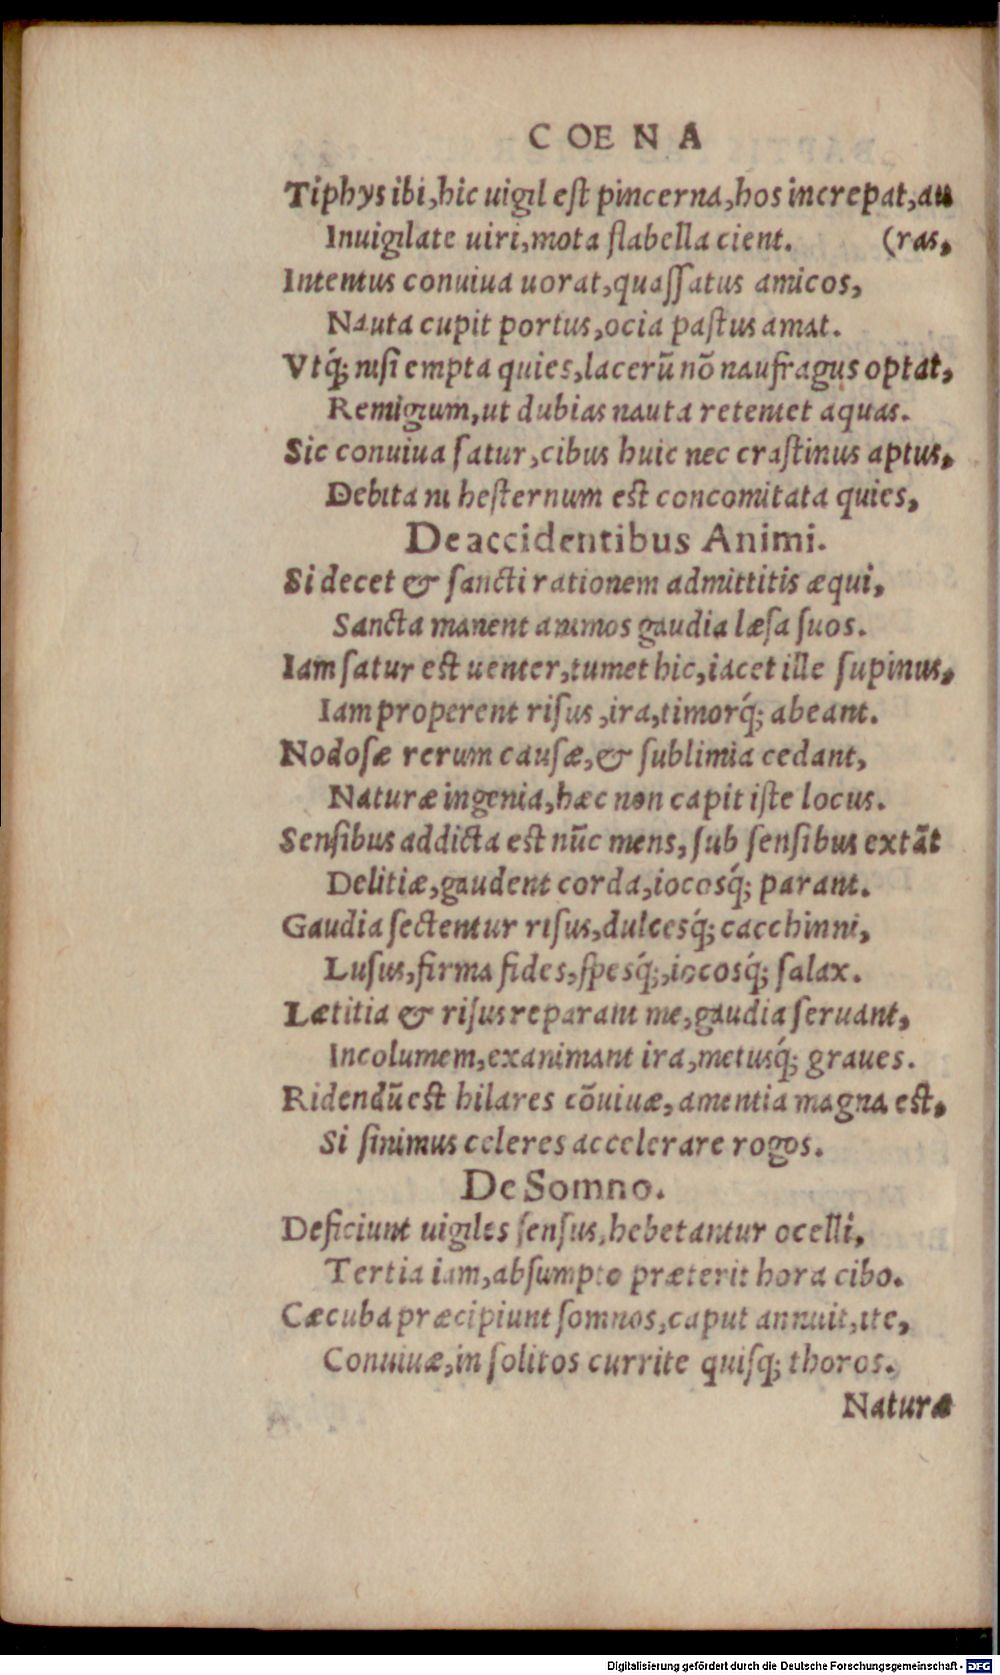 COENA
Tiphys ibi, hic uigil est pincerna, hos increpat, au
Inuigilate uiri, mota flabella cient. (ras,
Intentus conuiua uorat, quassatus amicos,
Nauta cupit portus, ocia pastus amat.
Vtq́; nisi empta quies, lacerū nō naufragus optat,
Remigium, ut dubias nauta retentet aquas.
Sic conuiua satur, cibus huic nec crastinus aptus,
Debita ni hesternum est concomitata quies,
De accidentibus Animi.
Si decet & sancti rationem admittitis æqui,
Sancta manent animos gaudia læsa suos.
Iam satur est uenter, tumet hic, iacet ille supinus,
Iam properent risus, ira, timorq́; abeant.
Nodosæ rerum causæ, & sublimia cedant,
Naturæ ingenia, hæc non capit iste locus.
Sensibus addicta est nūc mens, sub sensibus extāt
Delitiæ, gaudent corda, iocosq́; parant.
Gaudia sectentur risus, dulcesq́; cacchinni,
Lusus, firma fides, spesq́;, iocosq́; salax.
Lætitia & risus reparant me, gaudia seruant,
Incolumem, exanimant ira, metusq́; graues.
Ridendū est hilares cōuiuæ, amentia magna est,
Si sinimus celeres accelerare rogos.
De Somno.
Deficiunt uigiles sensus, hebetantur ocelli,
Tertia iam, absumpto præterit hora cibo.
Cæcuba præcipiunt somnos, caput annuit, ite,
Conuiuæ, in solitos currite quisq; thoros.
Naturæ
Digitalisierung gefördert durch die Deutsche Forschungsgemeinschaft - DFG